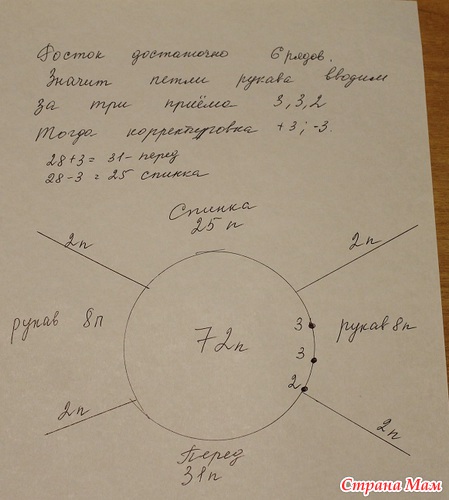 Росток достаточно 6 рядов.
Значит петли рукава вводим
за три приёма 3, 3, 2
Тогда корректировка +3; -3.
28+3 = 31 - перед
28-3 = 25 спинка
Спинка
25 п
2п
2п
рукав 8п
72п
3
3
2
рукав 8п
2п
2п
Перед
31п
Страна Мам